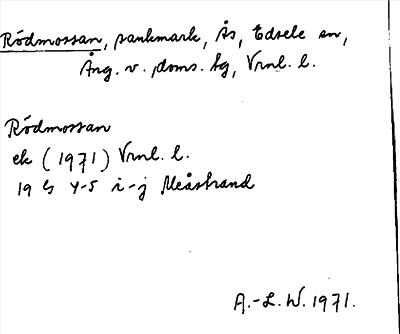 Rödmossan, sankmark, Ås, Edsele sn,
Ång. v. doms. tg, Vrnl. l.
Rödmossan
ek (1971) Vrnl. l.
19 G 4-5 i-j Meåstrand
A.-L. W. 1971.